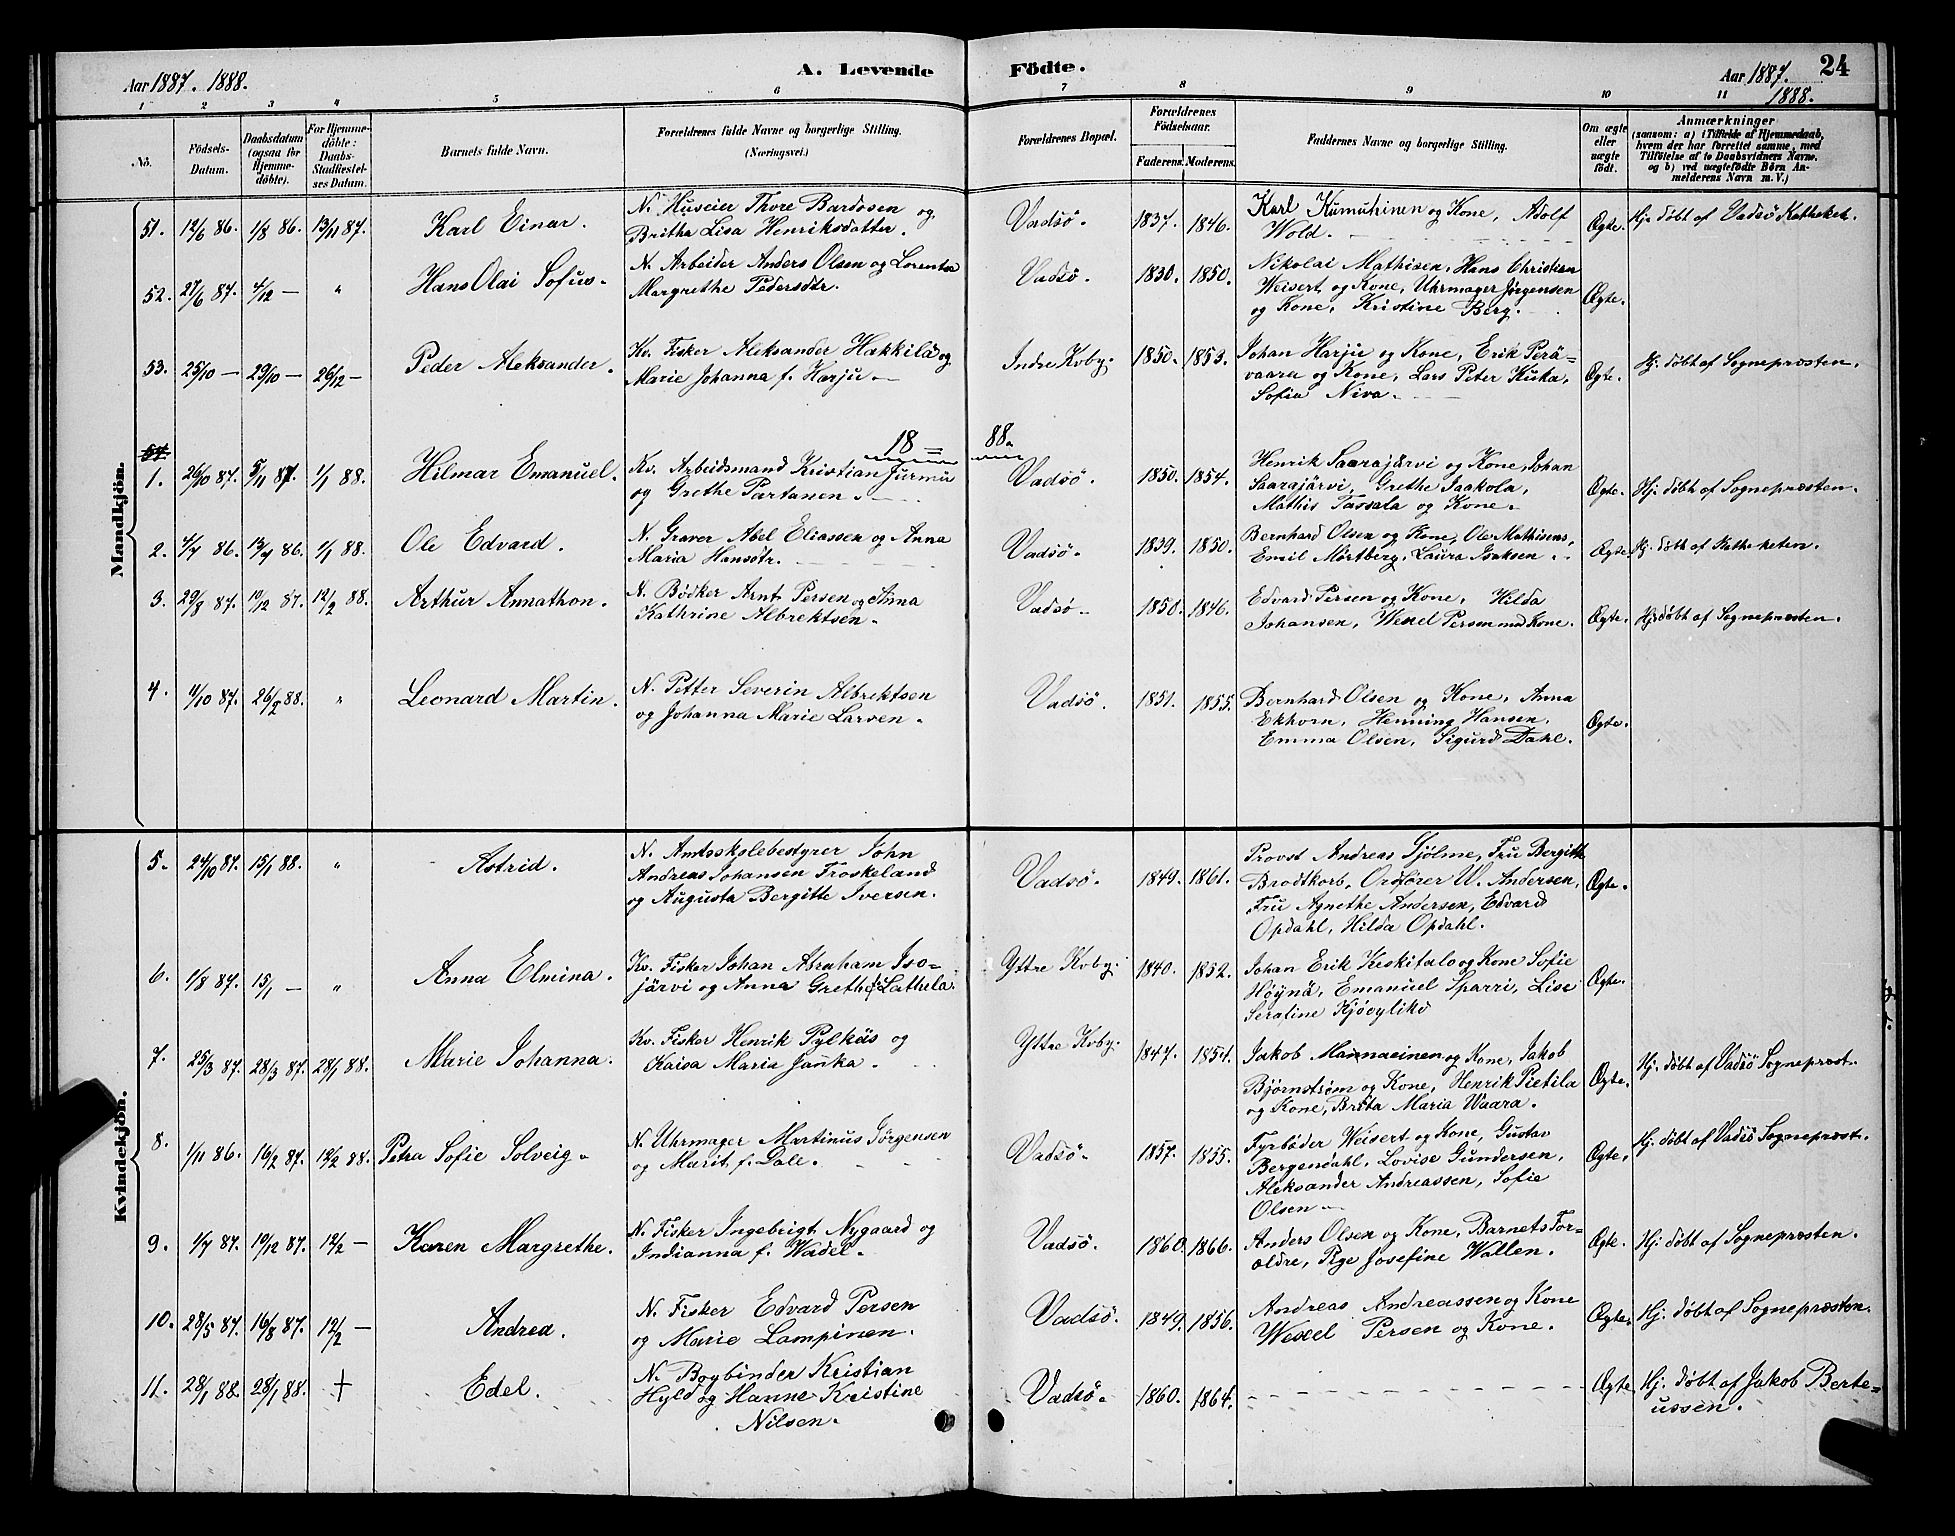 Aar 1887. 1888.
A. Levende Födte.
Aar 1887. 1888. 24
1 2 3 4 5 6 7 8 9 10 11
No.
Födsels-Datum.
Daabsdatum (ogsaa for Hjemme-döbte).
For Hjemme-döbte: Daabs-Stadfæstel-ses Datum.
Barnets fulde Navn.
Forældrenes fulde Navne og borgerlige Stilling. (Næringsvei.)
Forældrenes Bopæl.
Forældrenes Födselsaar.
Faderens. Moderens.
Faddernes Navne og borgerlige Stilling.
Om ægte eller uægte födt.
Anmærkninger
(saasom: a) i Tilfælde af Hjemmedaab, hvem der har forrettet samme, med Tilföielse af to Daabsvidners Navne, og b) ved uægtefödte Börn An-melderens Navn m. V.)
Mandkjön.
51. 12/6 86. 1/8 86. 13/11 87. Karl Einar.
N. Huseier Thore Bardosen og
Britha Lisa Henriksdatter.
Vadsö. 1837. 1846.
Karl Kumuhinen og Kone, Adolf
Wold.
Ægte. Hj. döbt af Vadsö Katheket.
52. 27/6 87. 4/12 — " Hans Olai Sofus.
N. Arbeider Anders Olsen og Lorentse
Margrethe Pedersdtr.
Vadsö. 1830. 1850.
Nikolai Mathisen, Hans Christian
Weisert og Kone, Uhrmager Jörgensen
og Kone, Kristine Berg.
Ægte.
53. 25/10 — 29/10 — 26/12 — Peder Aleksander.
Kv. Fisker Aleksander Hækkilä og
Marie Johanna f. Harju.
Indre Kvby. 1850. 1853.
Johan Harju og Kone, Erik Perä-
vaara og Kone, Lars Peter Kuka,
Sofia Niva.
Ægte. Hj. döbt af Sognepræsten.
18 = 88.
54.
1. 26/10 87. 5/11 87. 1/1 88. Hilmar Emanuel.
Kv. Arbeidsmand Kristian Jurmu
og Grethe Partanen.
Vadsö. 1850. 1854.
Henrik Saarajärvi og Kone, Johan
Saarajärvi, Grethe Jaakola,
Mathis Tassala og Kone.
Ægte. Hj. döbt af Sognepræsten.
2. 4/7 86. 13/7 86. 1/1 88. Ole Edvard.
N. Graver Abel Eliassen og Anna
Maria Hansdtr.
Vadsö. 1839. 1850.
Bernhard Olsen og Kone, Ole Mathisens,
Emil Mörtberg, Laura Isaksen.
Ægte. Hj. döbt af Katheketen.
3. 29/8 87. 10/12 87. 12/2 88. Arthur Annathon.
N. Bödker Arnt Persen og Anna
Kathrine Albrektsen.
Vadsö. 1850. 1846.
Edvard Persen og Kone, Hilda
Johansen, Wexel Persen med Kone.
Ægte. Hj. döbt af Sognepræsten.
4. 11/10 87. 26/2 88. " Leonard Martin.
N. Petter Severin Albrektsen
og Johanna Marie Larsen.
Vadsö. 1851. 1855.
Bernhard Olsen og Kone, Anna
Ekhorn, Henning Hansen,
Emma Olsen, Sigurd Dahl.
Ægte.
Kvindekjön.
5. 24/10 87. 15/1 88. " Astrid.
N. Amtsskolebestyrer John
Andreas Johansen Froskeland
og Augusta Bergitte Iversen.
Vadsö. 1849. 1861.
Provst Andreas Gjölme, Fru Bergitte
Brodtkorb, Ordförer W. Andersen,
Fru Agnethe Andersen, Edvard
Opdahl, Hilda Opdahl.
Ægte.
6. 1/8 87. 15/1 — " Anna Elmina.
Kv. Fisker Johan Abraham Iso-
järvi og Anna Grethe f. Lathela.
Yttre Kvby. 1840. 1852.
Johan Erik Keskitalo og Kone Sofie
Höynä, Emanuel Sparri, Lise
Serafine Kjövylikö
Ægte.
7. 25/3 87. 28/3 87. 28/1 88. Marie Johanna.
Kv. Fisker Henrik Pylkäs og
Kaisa Maria Junka.
Yttre Kvby. 1847. 1854.
Jakob Mannaeinen og Kone, Jakob
Björnström og Kone, Henrik Pietila
og Kone, Brita Maria Waara.
Ægte. Hj. döbt af Vadsö Sognepræst.
8. 1/11 86. 16/2 87. 12/2 88. Petra Sofie Solveig.
N. Uhrmager Martinus Jörgensen
og Marit f. Dale.
Vadsö. 1857. 1855.
Fyrböder Weisert og Kone, Gustav
Bergendahl, Lovise Gundersen,
Aleksander Andreassen, Sofie
Olsen
Ægte. Hj. döbt af Vadsö Sognepræst.
9. 1/7 87. 19/12 87. 12/2 — Karen Margrethe.
N. Fisker Ingebrigt Nygaard og
Indianna f. Wadel.
Vadsö. 1860. 1866.
Anders Olsen og Kone, Barnets For-
ældre, Pige Josefine Wallen.
Ægte. Hj. döbt af Sognepræsten.
10. 28/5 87. 16/8 87. 12/2 — Andrea.
N. Fisker Edvard Persen
og Marie Lampinen.
Vadsö. 1849. 1856.
Andreas Andreassen og Kone
Wexel Persen og Kone.
Ægte. Hj. döbt af Sognepræsten.
11. 28/1 88. 28/1 88. † Edel.
N. Bogbinder Kristian
Hyld og Hanne Kristine
Nilsen.
Vadsö. 1860. 1864.
Ægte Hj. döbt af Jakob Berte-
ussen.